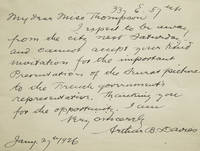 33 E 57 St
My dear Miss Thompson
I expect to be away
from the city next Saturday
and cannot accept your kind
invitation for the important
Presentation of the Seurat picture
to the French government's
representation. Thanking you
for the opportunity, I am
Very sincerely
Arthur B. Davies
Jany. 29 1926